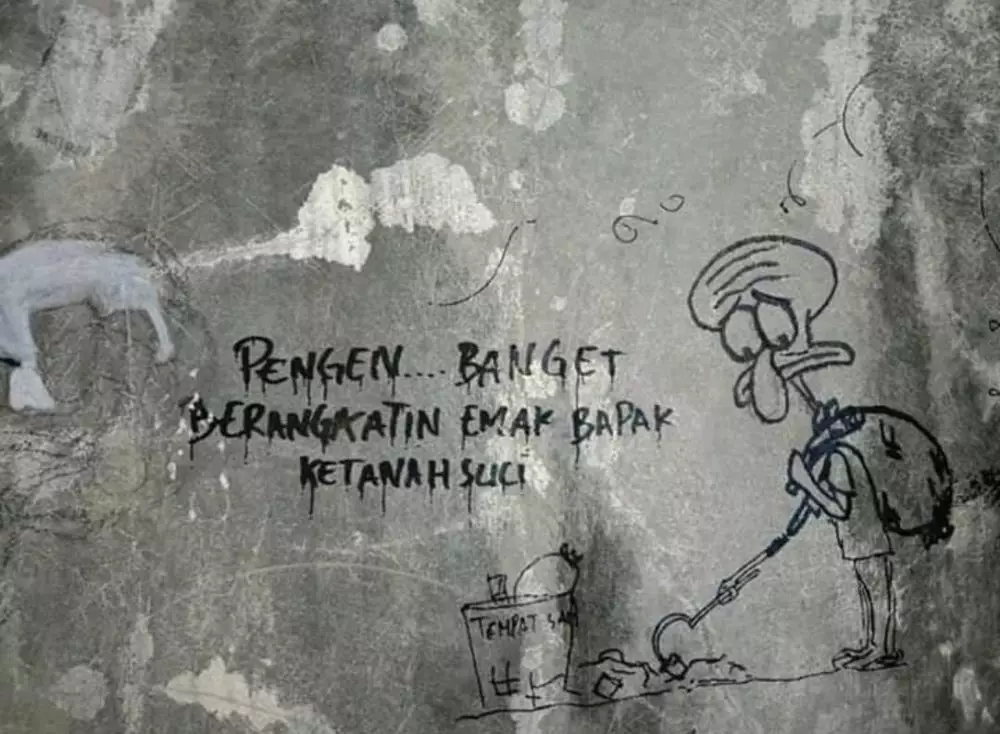 PENGEN.... BANGET
BERANGKATIN EMAK BAPAK
KETANAH SUCI
TEMPAT SA